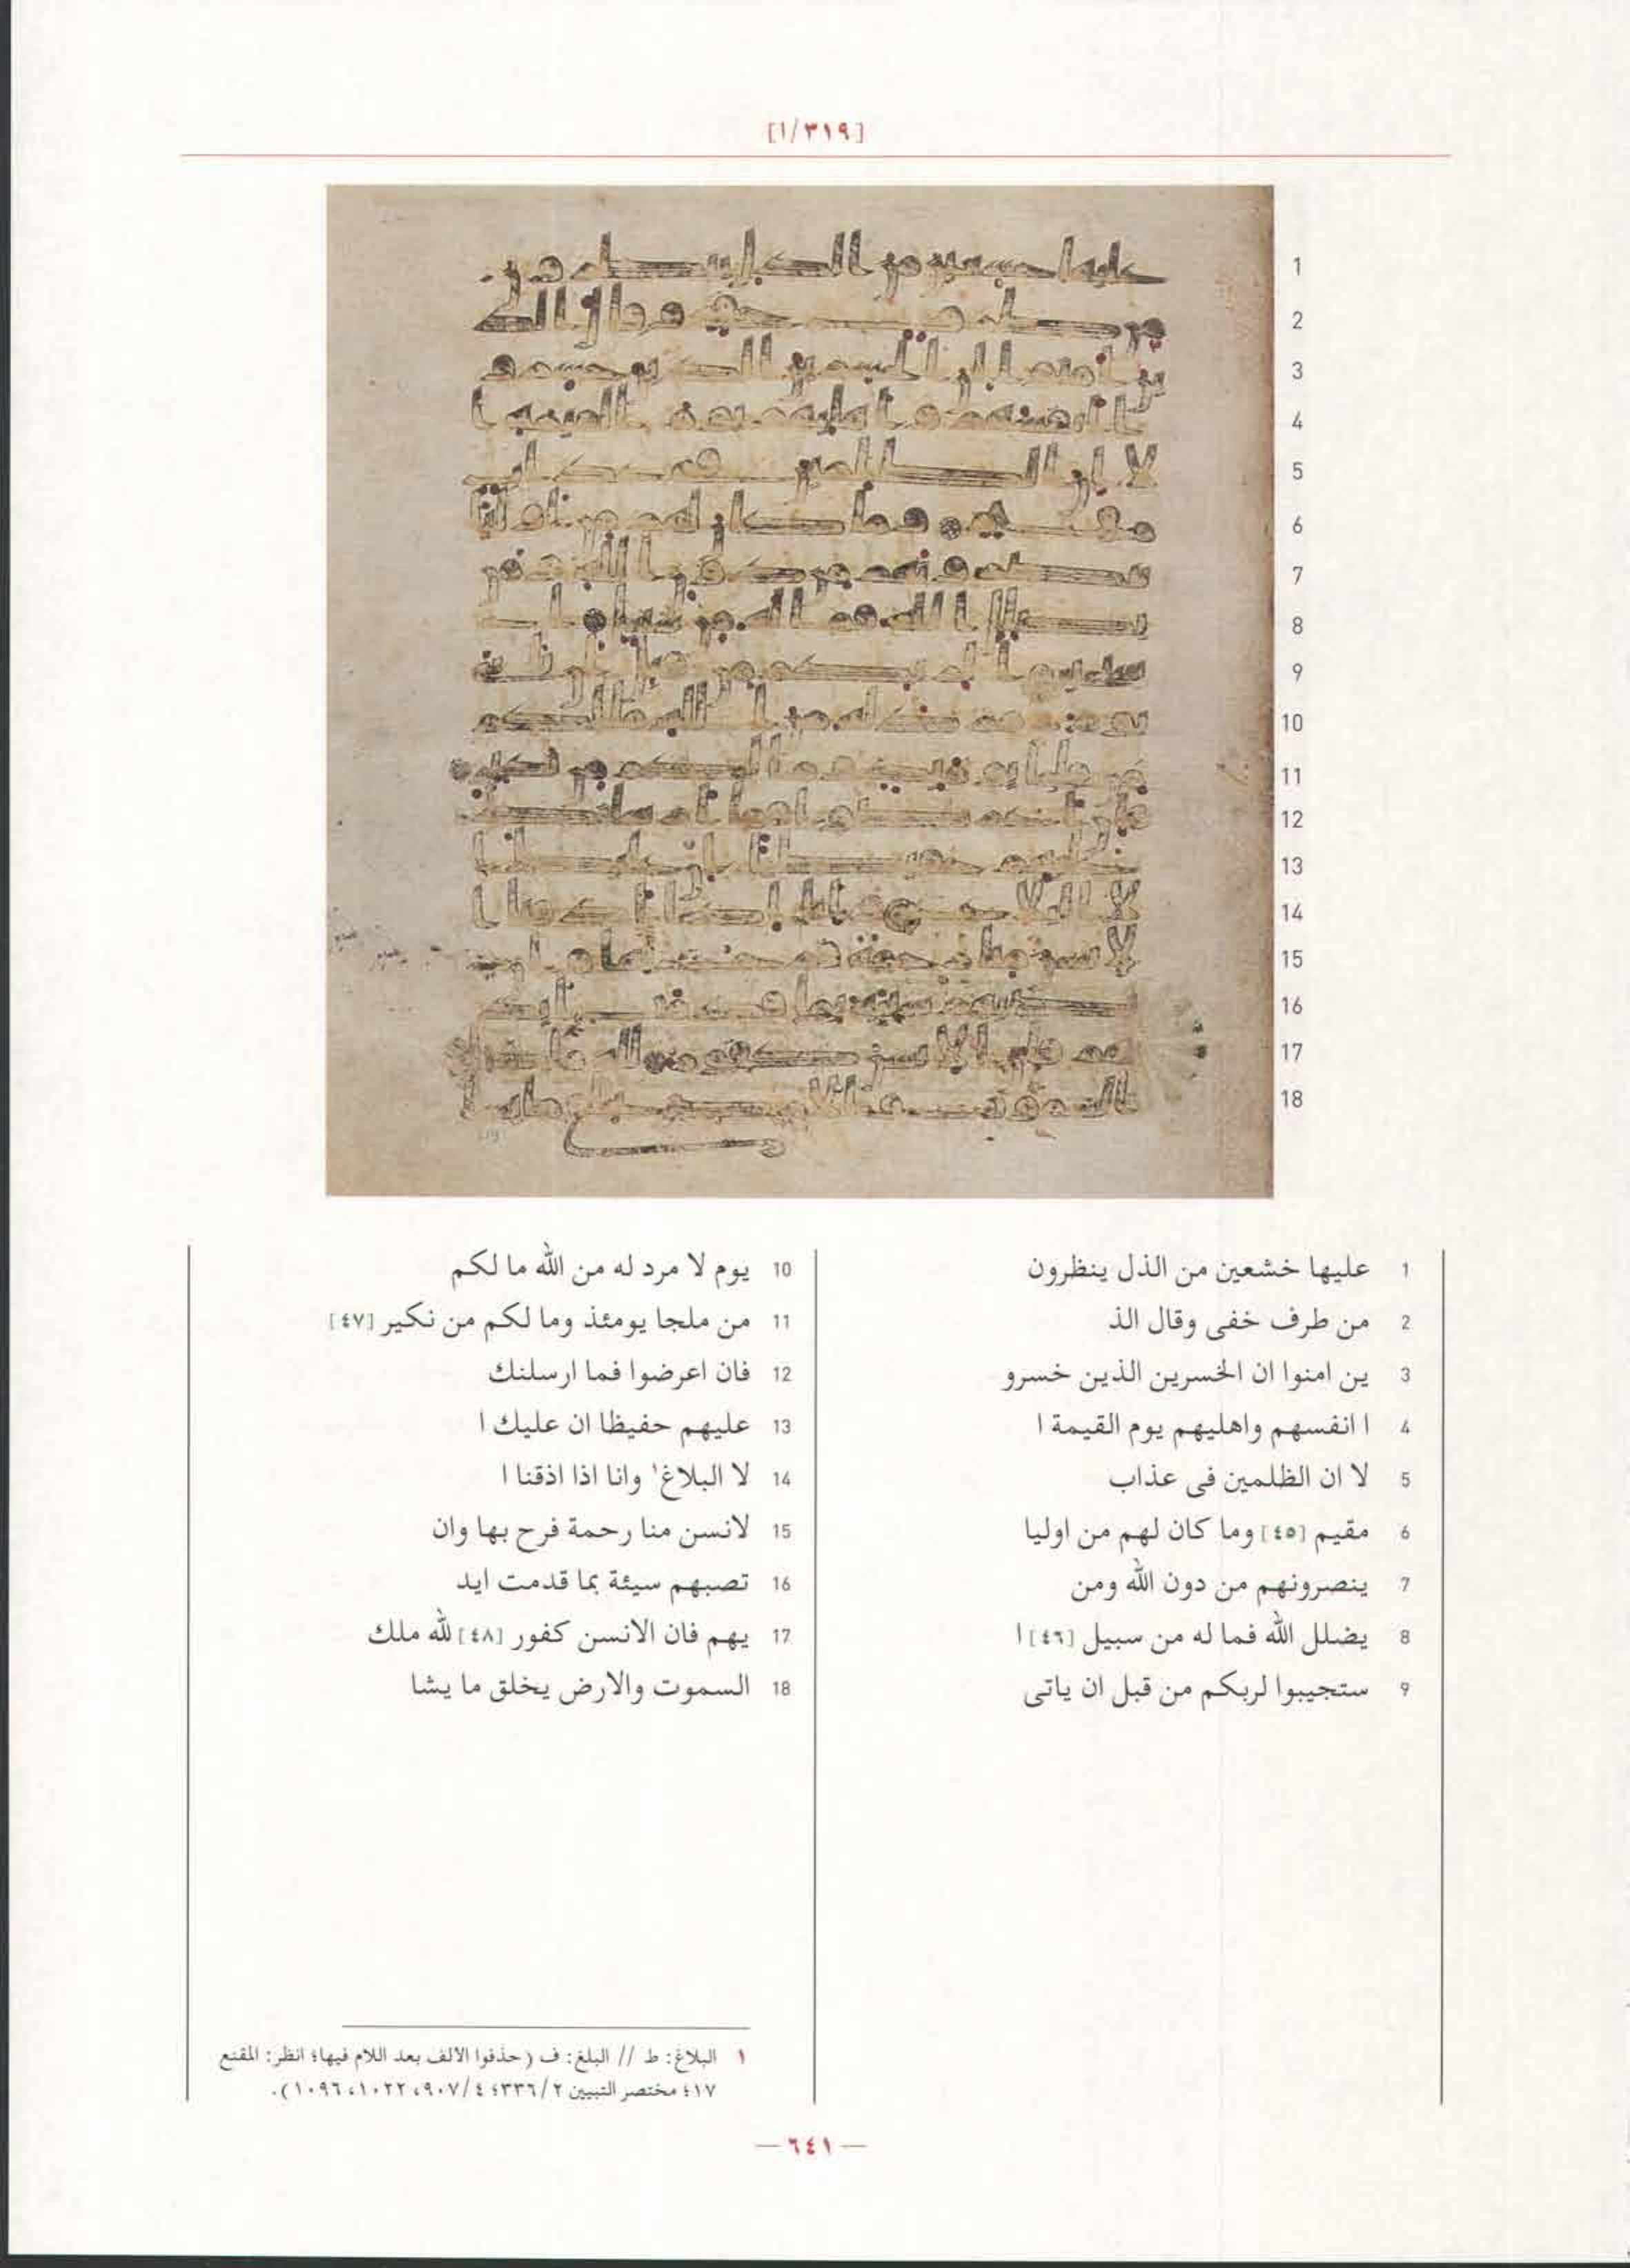 [١/٣١٩]
1 عليها خشعين من الذل ينظرون
2 من طرف خفى وقال الذ
3 ين امنوا ان الخسرين الذين خسرو
4 ا انفسهم واهليهم يوم القيمة ا
5 لا ان الظلمين فى عذاب
6 مقيم [٤٥] وما كان لهم من اوليا
7 ينصرونهم من دون الله ومن
8 يضلل الله فما له من سبيل [٤٦] ا
9 ستجيبوا لربكم من قبل ان ياتى
10 يوم لا مرد له من الله ما لكم
11 من ملجا يومئذ وما لكم من نكير [٤٧]
12 فان اعرضوا فما ارسلنك
13 عليهم حفيظا ان عليك ا
14 لا البلاغ١ وانا اذا اذقنا ا
15 لانسن منا رحمة فرح بها وان
16 تصبهم سيئة بما قدمت ايد
17 يهم فان الانسن كفور [٤٨] لله ملك
18 السموت والارض يخلق ما يشا
١ البلاغ: ط // البلغ: ف (حذفوا الالف بعد اللام فيها؛ انظر: المقنع
١٧؛ مختصر التبيين ٢/٣٣٦؛ ٤/٩٠٧، ١٠٢٢، ١٠٩٦).
— ٦٤١ —